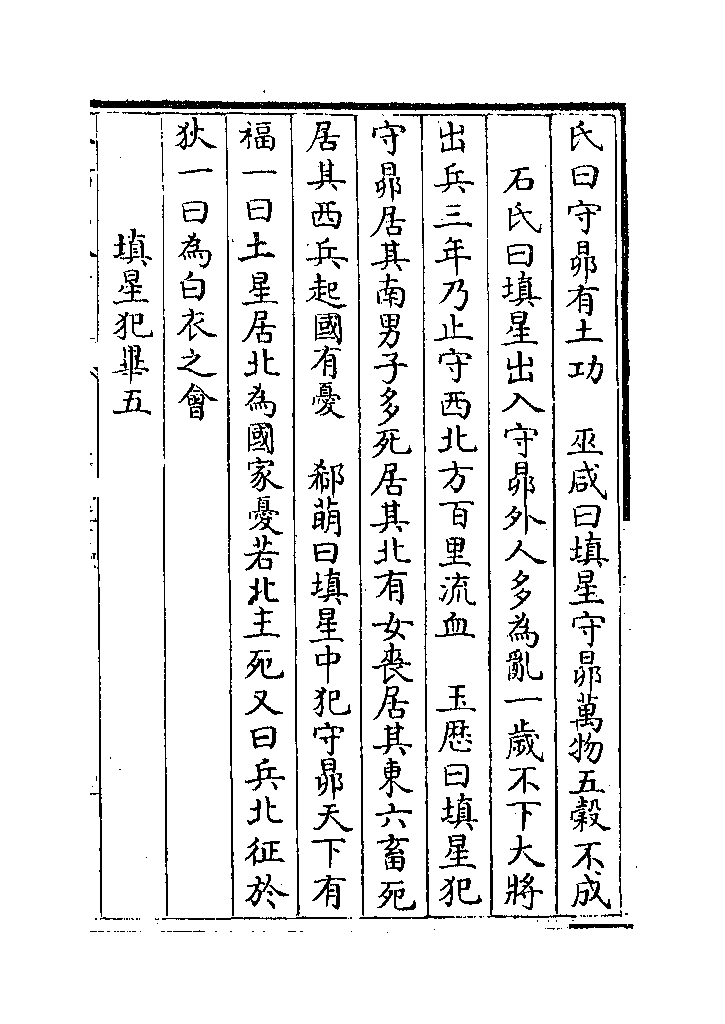 氏曰守昴有土功　巫咸曰填星守昴萬物五穀不成
石氏曰填星出入守昴外人多為亂一歲不下大將
出兵三年乃止守西北方百里流血　玉厯曰填星犯
守昴居其南男子多死居其北有女喪居其東六畜死
居其西兵起國有憂　郗萌曰填星中犯守昴天下有
福一曰土星居北為國家憂若北主死又曰兵北征於
狄一曰為白衣之會
填星犯畢五